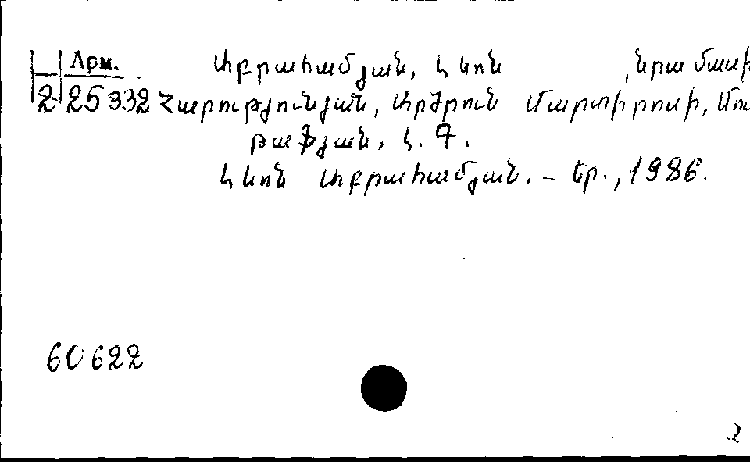 Арм. Աբրահամյան, Լևոն , նրա մասի
2 25332 Հարությունյան, Արծրուն Մարտիրոսի, Մու
րաֆյան, Լ. Գ.
Լևոն Աբրահամյան. – Եր., 1986.
60622
2